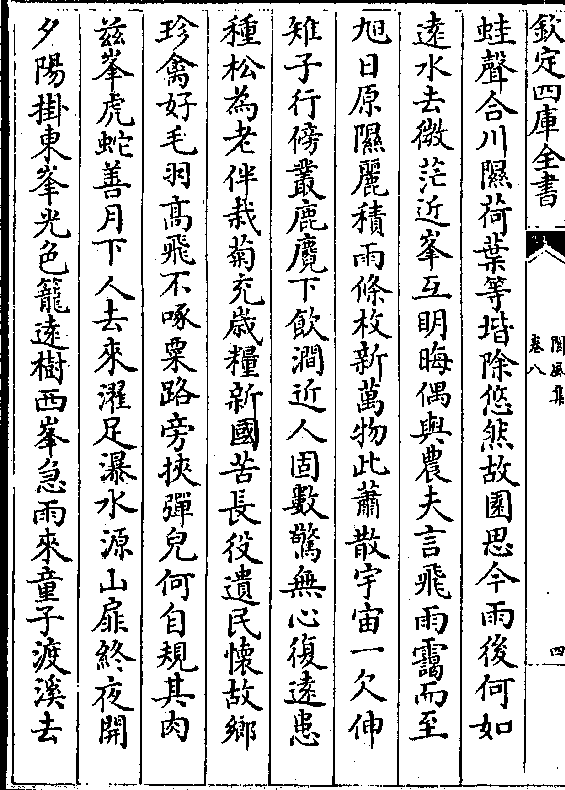 欽定四庫全書
閬風集
卷八
四
蛙聲合川隰荷葉等堦除悠然故園思今雨後何如
逺水去微茫近峯互明晦偶與農夫言飛雨靄而至
旭日原隰麗積雨條枚新萬物此蕭散宇宙一欠伸
雉子行傍叢鹿麑下飲澗近人固數驚無心復逺患
種松為老伴栽菊充歳糧新國苦長役遺民懷故鄉
珍禽好毛羽高飛不啄粟路旁挾彈兒何自規其肉
兹峯虎蛇善月下人去來濯足瀑水源山扉終夜開
夕陽掛東峯光色籠逺樹西峯急雨來童子渡溪去